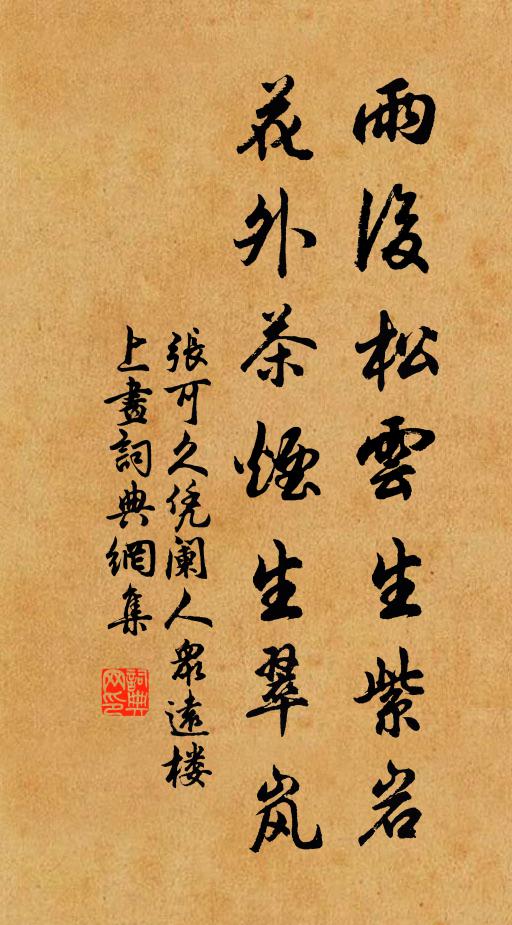 雨後松雲生紫岩
花外茶煙生翠岚
張可久凭阑人眾遠楼
上畫詞典網集
詞典
网印